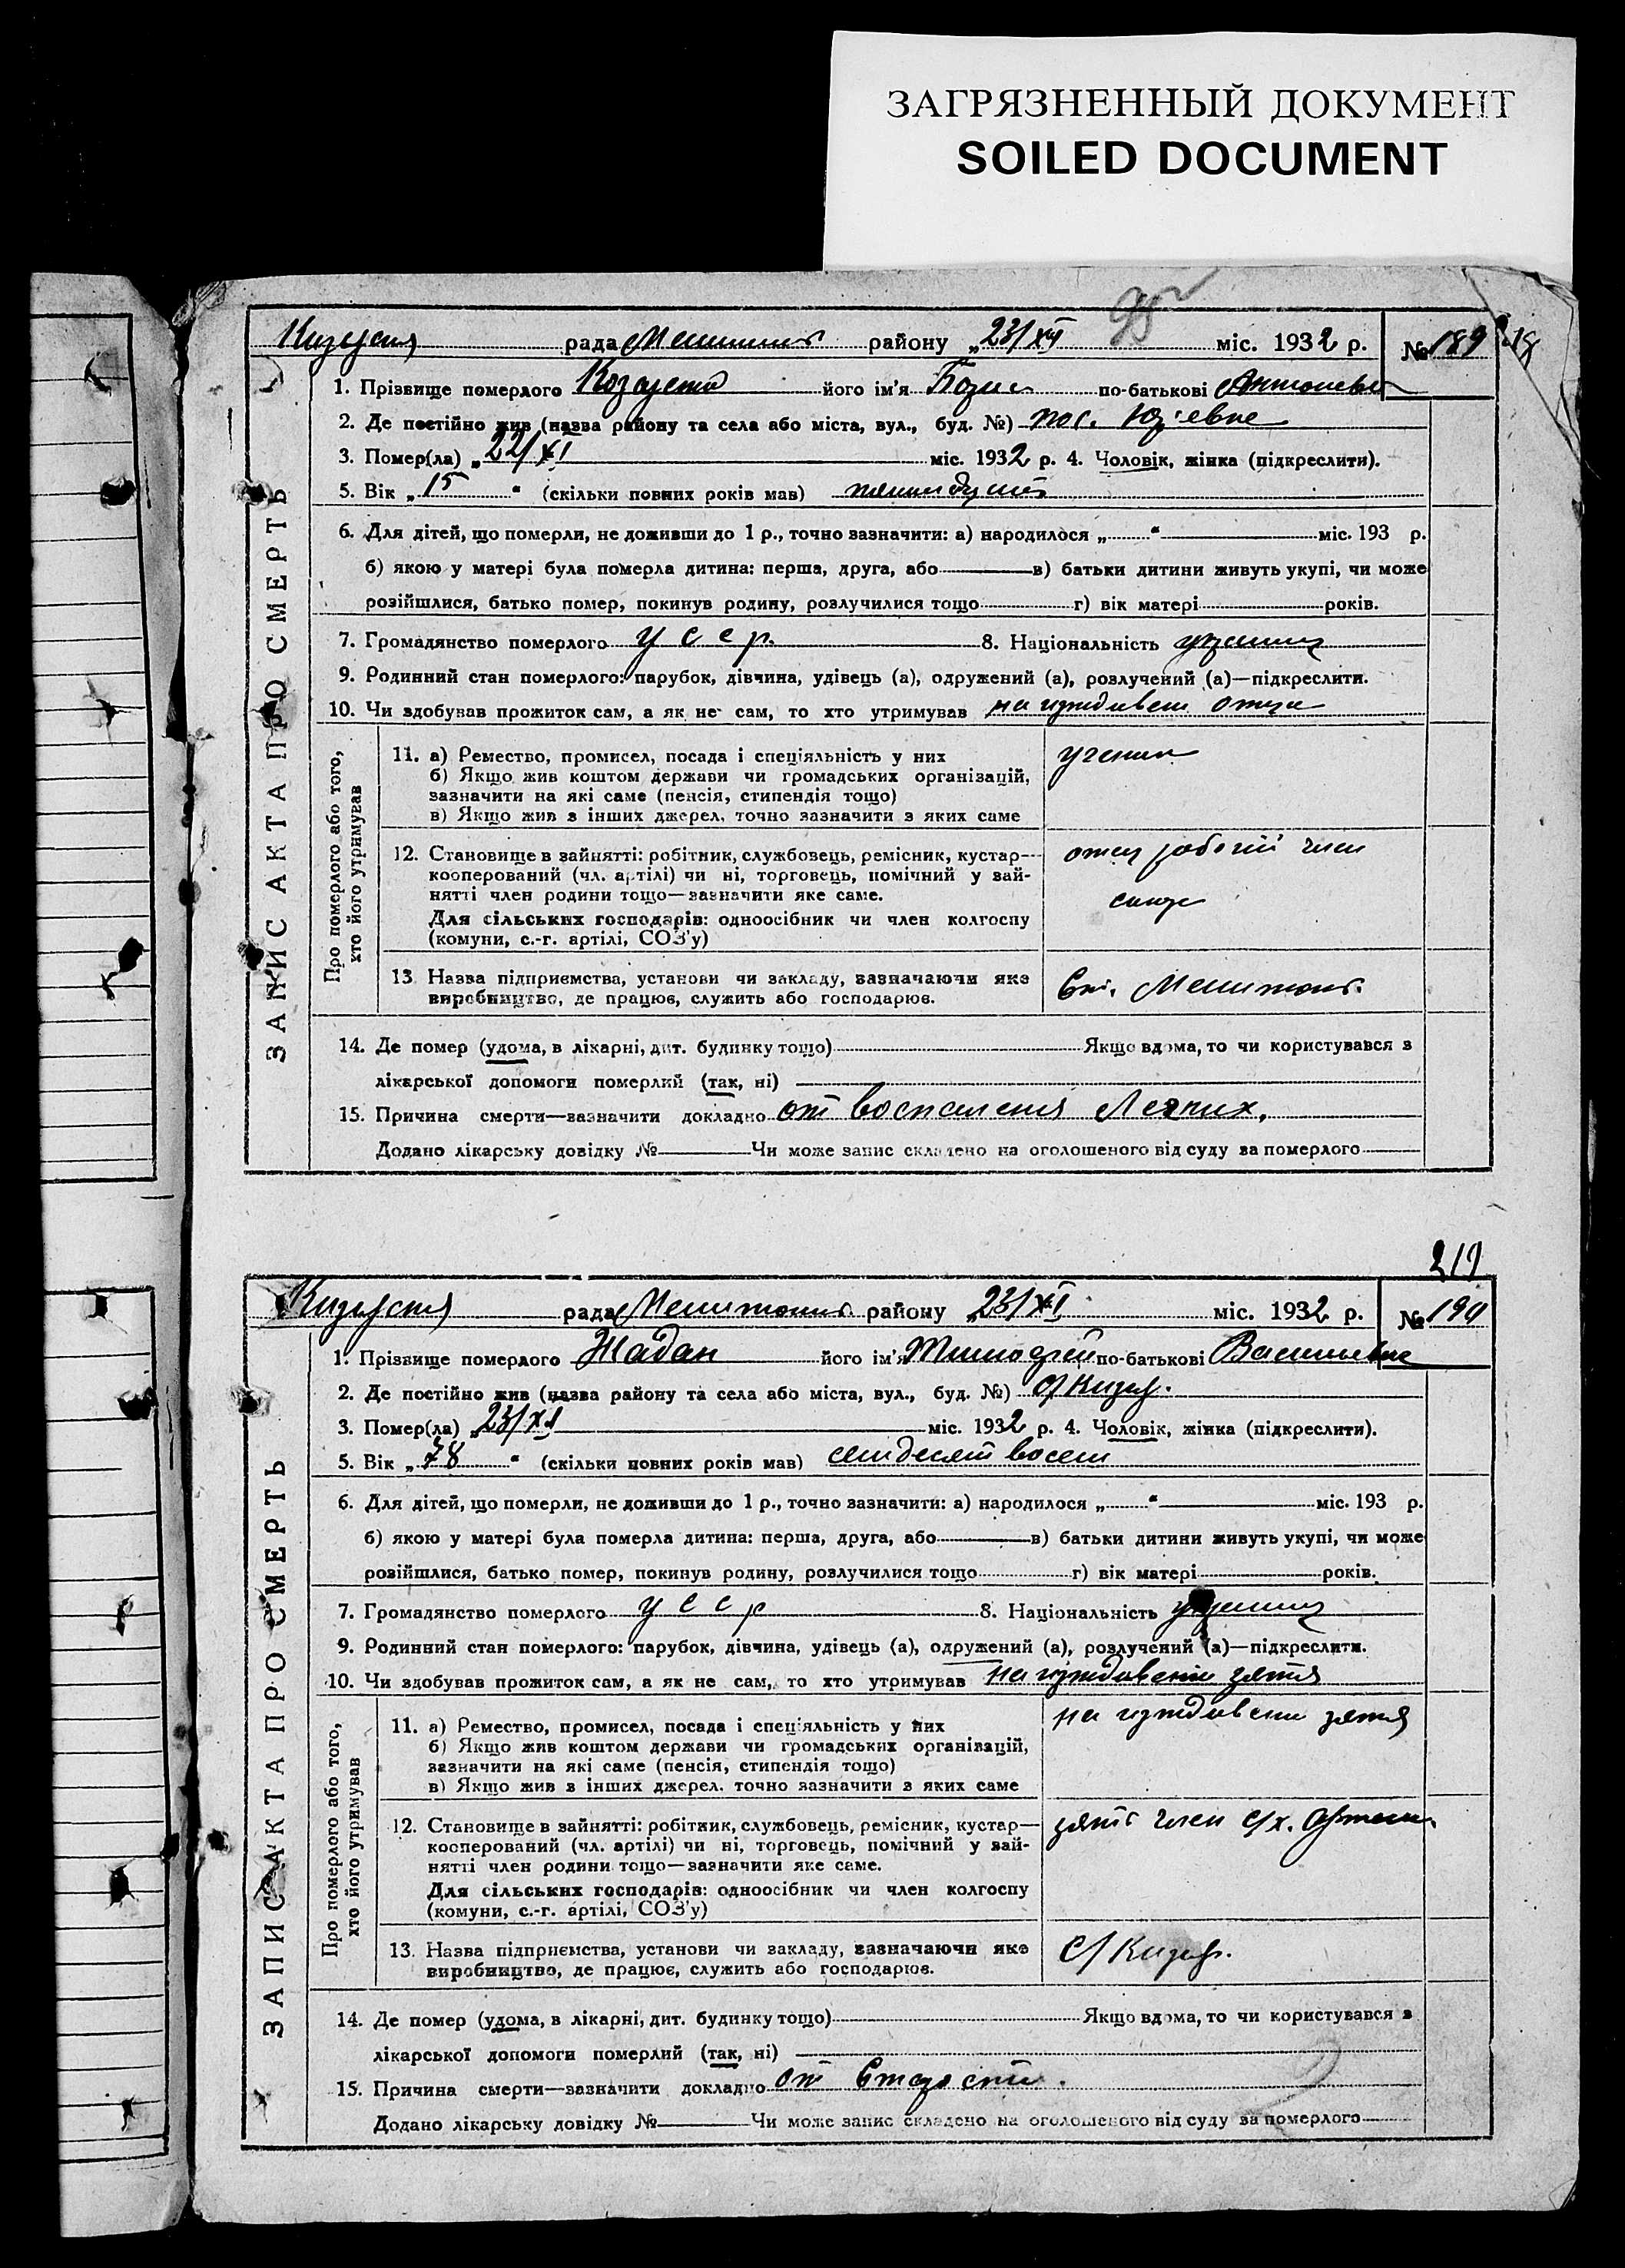 ЗАГРЯЗНЕННЫЙ ДОКУМЕНТ
SOILED DOCUMENT
рада района „23/XII міс. 1932 р. № 189
1. Прізвище померлого його ім'я Борис по-батькові
2. Де постійно жив (назва району та села або міста, вул., буд. №) пос.
3. Помер(ла) „22/XI міс. 1932 р. 4. Чоловік, жінка (підкреслити).
5. Вік „15 “ (скільки повних років мав)
6. Для дітей, що померли, не доживши до 1 р., точно зазначити: а) народилося „ “ міс. 193 р.
б) якою у матері була померла дитина: перша, друга, або в) батьки дитини живуть укупі, чи може
розійшлися, батько помер, покинув родину, розлучилися тощо г) вік матері років.
7. Громадянство померлого У с с р. 8. Національність
9. Родинний стан померлого: парубок, дівчина, удівець (а), одружений (а), розлучений (а)—підкреслити.
10. Чи здобував прожиток сам, а як не сам, то хто утримував на иждивен отца
ЗАПИС АКТА ПРО СМЕРТЬ
Про померлого або того,
хто його утримував
11. а) Ремество, промисел, посада і спеціяльність у них ученик
б) Якщо жив коштом держави чи громадських організацій,
зазначити на які саме (пенсія, стипендія тощо)
в) Якщо жив з інших джерел, точно зазначити з яких саме
12. Становище в зайнятті: робітник, службовець, ремісник, кустар— отец рабочий член
кооперований (чл. артілі) чи ні, торговець, помічний у зай-
нятті член родини тощо—зазначити яке саме. союза
Для сільських господарів: одноосібник чи член колгоспу
(комуни, с.-г. артілі, СОЗ'у)
13. Назва підприємства, установи чи закладу, зазначаючи яке
виробництво, де працює, служить або господарює.
14. Де помер (удома, в лікарні, дит. будинку тощо) Якщо вдома, то чи користувався з
лікарської допомоги померлий (так, ні)
15. Причина смерти—зазначити докладно от воспаления Легких,
Додано лікарську довідку № Чи може запис складено на оголошеного від суду за померлого
219
рада району „23/XI міс. 1932 р. № 190
1. Прізвище померлого Жадан його ім'я Тимофей по-батькові
2. Де постійно жив (назва району та села або міста, вул., буд. №)
3. Помер(ла) „23/XI міс. 1932 р. 4. Чоловік, жінка (підкреслити).
5. Вік „78 “ (скільки повних років мав) семдесят восем
6. Для дітей, що померли, не доживши до 1 р., точно зазначити: а) народилося „ “ міс. 193 р.
б) якою у матері була померла дитина: перша, друга, або в) батьки дитини живуть укупі, чи може
розійшлися, батько помер, покинув родину, розлучилися тощо г) вік матері років.
7. Громадянство померлого У с с р 8. Національність
9. Родинний стан померлого: парубок, дівчина, удівець (а), одружений (а), розлучений (а)—підкреслити.
10. Чи здобував прожиток сам, а як не сам, то хто утримував на иждивении зятя
ЗАПИС АКТА ПРО СМЕРТЬ
Про померлого або того,
хто його утримував
11. а) Ремество, промисел, посада і спеціяльність у них на иждивени зятя
б) Якщо жив коштом держави чи громадських організацій,
зазначити на які саме (пенсія, стипендія тощо)
в) Якщо жив з інших джерел, точно зазначити з яких саме
12. Становище в зайнятті: робітник, службовець, ремісник, кустар— зять член с/х. Артели
кооперований (чл. артілі) чи ні, торговець, помічний у зай-
нятті член родини тощо—зазначити яке саме.
Для сільських господарів: одноосібник чи член колгоспу
(комуни, с.-г. артілі, СОЗ'у)
13. Назва підприємства, установи чи закладу, зазначаючи яке
виробництво, де працює, служить або господарює.
14. Де помер (удома, в лікарні, дит. будинку тощо) Якщо вдома, то чи користувався з
лікарської допомоги померлий (так, ні)
15. Причина смерти—зазначити докладно от Старости.
Додано лікарську довідку № Чи може запис складено на оголошеного від суду за померлого